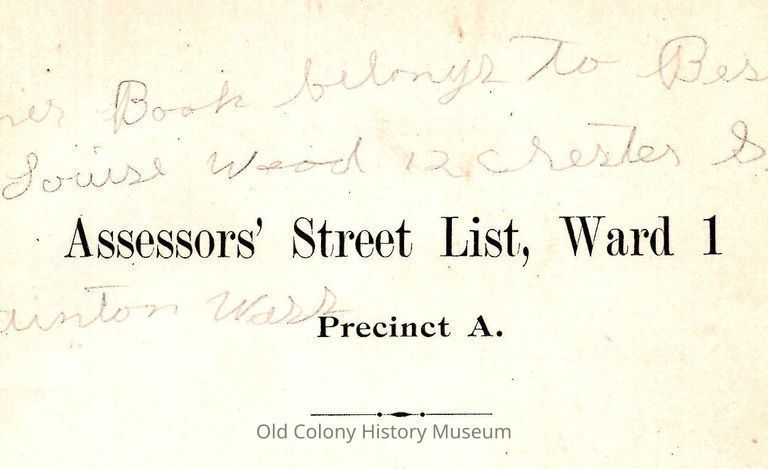 Book belongs To Bes
Louise Wood 12 Chester S
Assessors' Street List, Ward 1
aunton Mass
Precinct A.
Old Colony History Museum